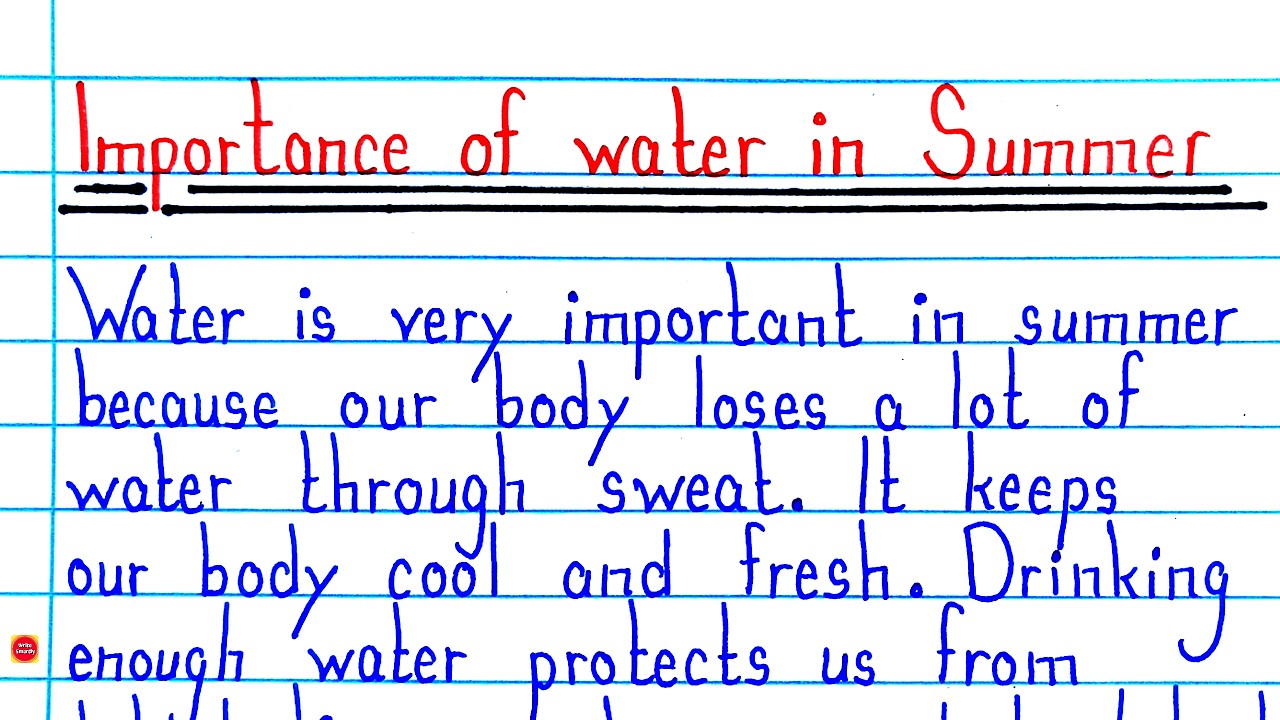 Importance of water in Summer
Water is very important in summer
because our body loses a lot of
water through sweat. It keeps
our body cool and fresh. Drinking
enough water protects us from
Write Smartly